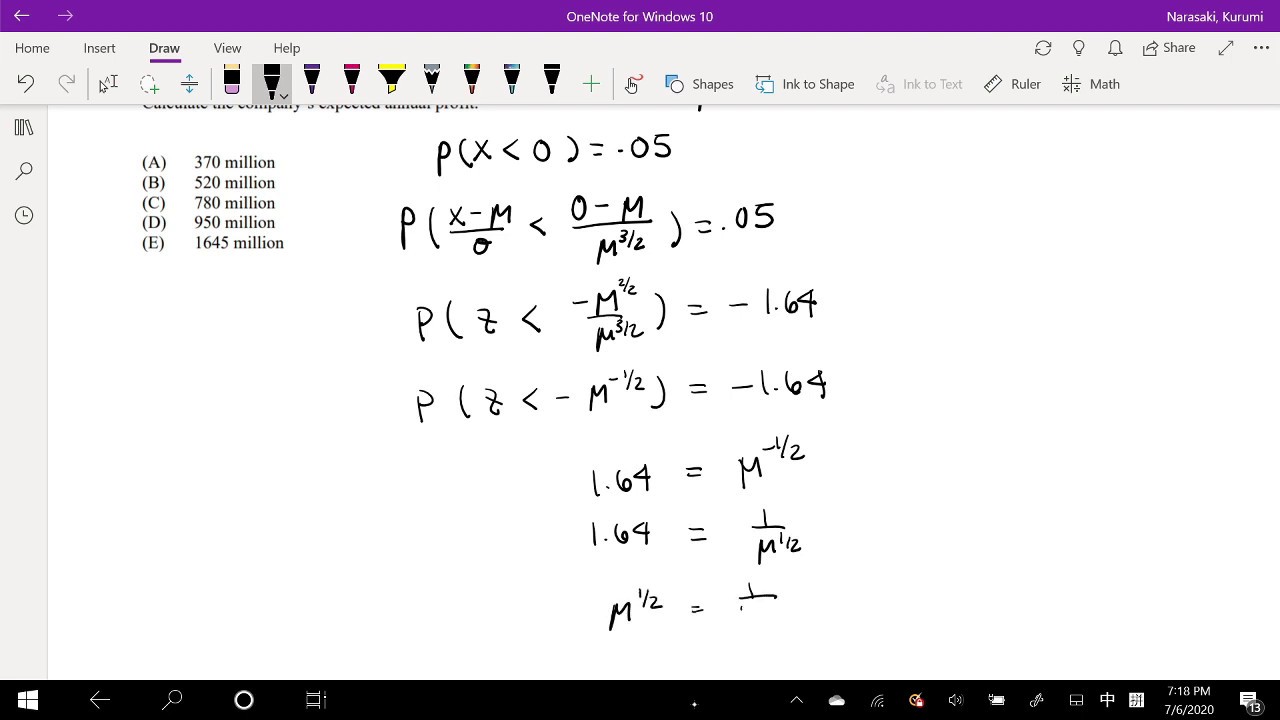 OneNote for Windows 10
Narasaki, Kurumi
Home Insert Draw View Help Share
Shapes Ink to Shape Ink to Text Ruler Math
Calculate the company's expected annual profit.
(A) 370 million
(B) 520 million
(C) 780 million
(D) 950 million
(E) 1645 million
P(X < 0) = .05
P( (X-M)/σ < (0-M)/M^3/2 ) = .05
P( Z < -M^2/2 / M^3/2 ) = -1.64
P( Z < -M^-1/2 ) = -1.64
1.64 = M^-1/2
1.64 = 1/M^1/2
M^1/2 = 1
中
7:18 PM
7/6/2020
13